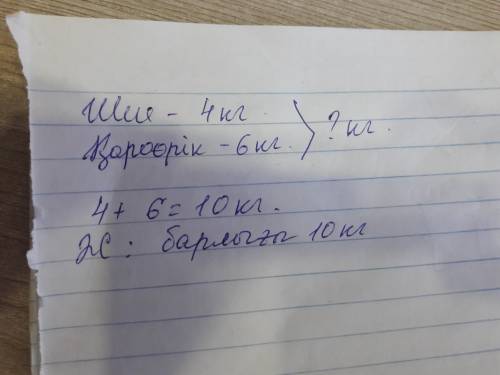 Шие - 4кг.
Қараөрік - 6кг. } ? кг.
4 + 6 = 10 кг.
Ж: барлығы 10 кг